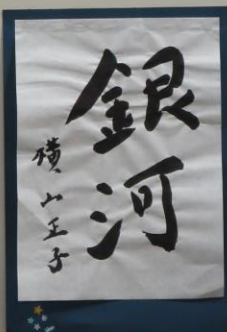 銀河
横山王子